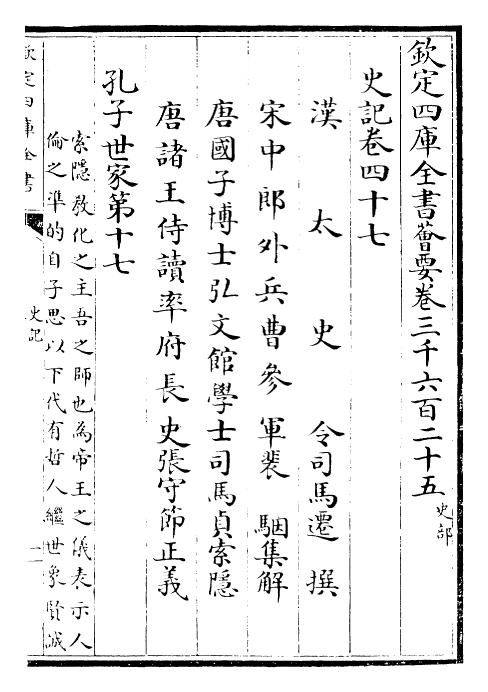 欽定四庫全書薈要卷三千六百二十五 史部
史記卷四十七
漢太史令司馬遷撰
宋中郎外兵曹參軍裴駰集解
唐國子博士弘文館學士司馬貞索隱
唐諸王侍讀率府長史張守節正義
孔子世家第十七
索隱教化之主吾之師也為帝王之儀表示人
倫之準的自子思以下代有哲人繼世象賢誠
欽定四庫全書
史記
一